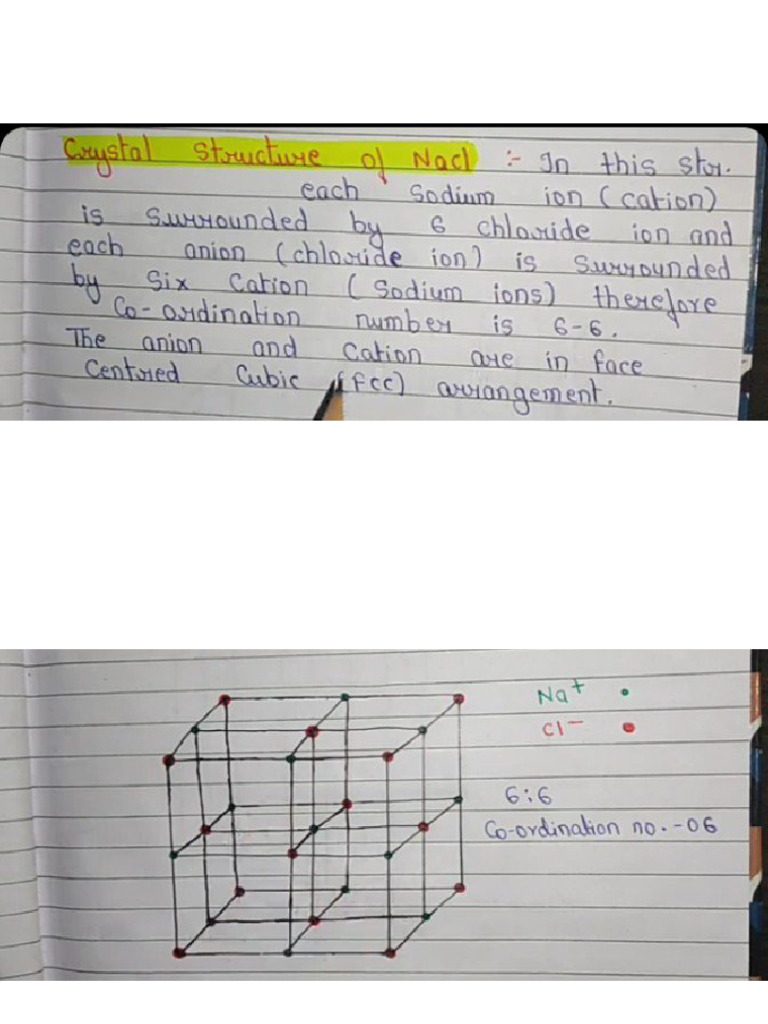 Crystal Structure of Nacl :- In this str.
each Sodium ion (cation)
is Surrounded by 6 chloride ion and
each anion (chloride ion) is Surrounded
by Six Cation (Sodium ions) therefore
Co-ordination number is 6-6.
The anion and Cation are in face
Centred Cubic (fcc) arrangement.
Na+
Cl-
6:6
Co-ordination no.-06